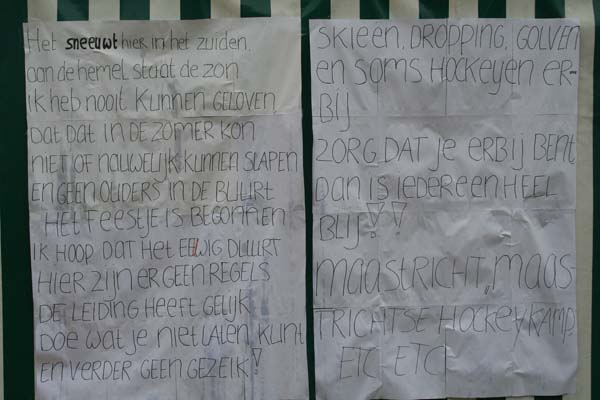 Het sneeuwt hier in het zuiden,
aan de hemel staat de zon
ik heb nooit kunnen geloven
Dat dat in de zomer kon
niet of nauwelijk kunnen slapen
en geen ouders in de buurt
Het feestje is begonnen
ik hoop dat het eewig duurt
Hier zijn er geen regels
De leiding heeft gelijk
Doe wat je niet laten kunt
en verder geen gezeik!
skieen, DROPPING, GOLVEN
en soms HOCKEYEN ER-
BIJ
ZORG DAT je ERBIJ BENT
Dan is iedereen HEEL
BLIJ!!
MAASTRICHT, MAAS-
TRICHTSE HOCKEYKAMP,
ETC ETC